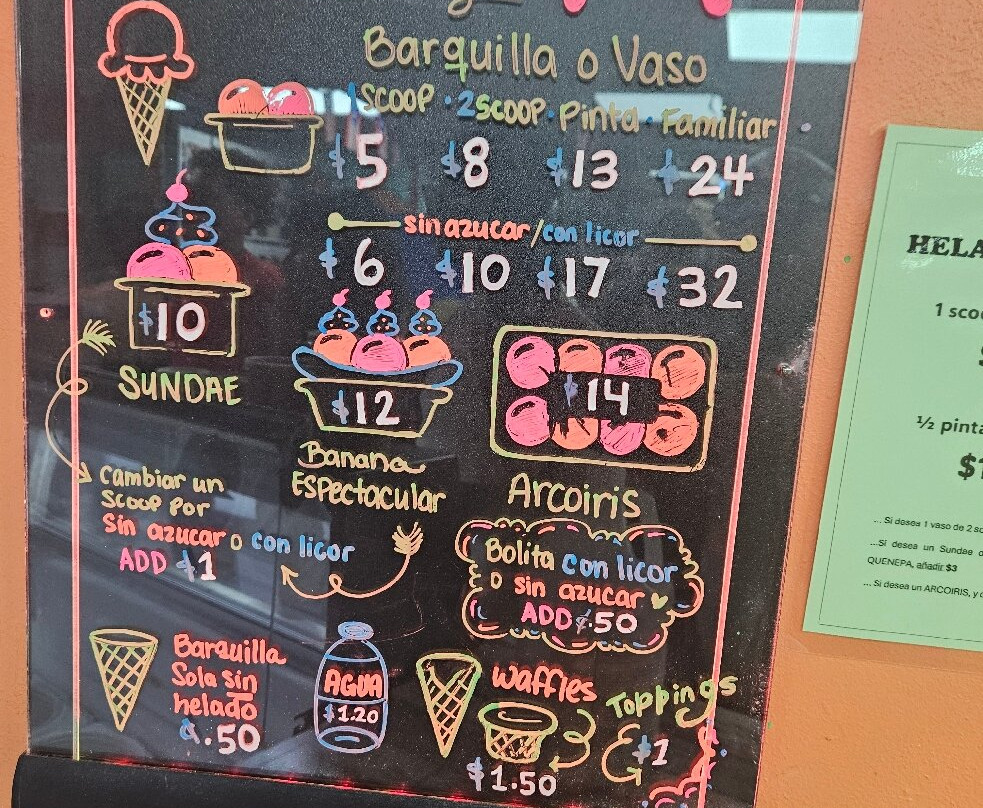 Barquilla o Vaso
1 SCOOP · 2 SCOOP · Pinta · Familiar
$5 $8 $13 $24
sin azucar/con licor
$6 $10 $17 $32
$10
SUNDAE
$12
Banana
Espectacular
$14
Arcoiris
Cambiar un
Scoop por
Sin azucar o con licor
ADD $1
Bolita con licor
o sin azucar
ADD $.50
Barquilla
Sola sin
helado
$.50
AGUA
$1.20
Waffles
$1.50
Toppings
$1
HELA
1 sco
½ pinta
... Si desea 1 vaso de 2 sc
...Si desea un Sundae o
QUENEPA, añadir $3
... Si desea un ARCOIRIS, y